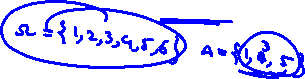 Ω = {1, 2, 3, 4, 5, 6} A = {1, 3, 5}